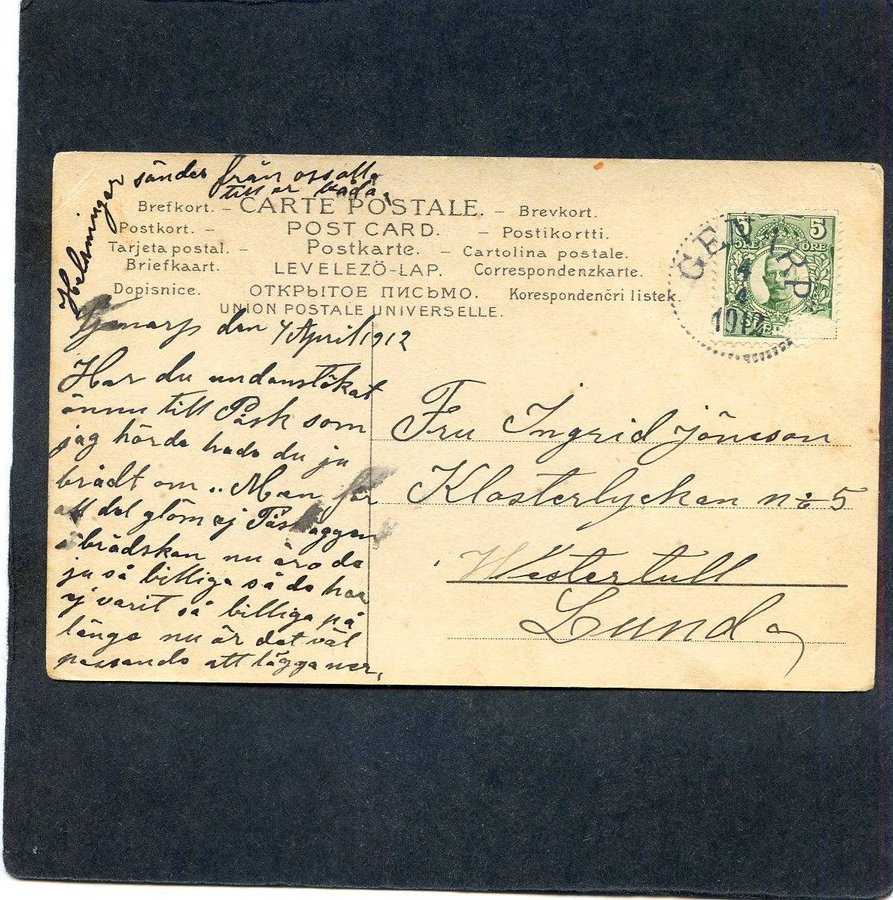 Helsningar sänder från oss alla
till er båda
Brefkort. – CARTE POSTALE. – Brevkort.
Postkort. – POST CARD. – Postikortti.
Tarjeta postal. – Postkarte. – Cartolina postale.
Briefkaart. LEVELEZÖ-LAP. Correspondenzkarte.
Dopisnice. ОТКРЫТОЕ ПИСЬМО. Korespondenčri listek.
UNION POSTALE UNIVERSELLE.
5 5
ÖRE ÖRE
GENARP
4
4
1912
Genarp den 4 April 1912
Har du undanstökat
ännu till Påsk som
jag hörde hade du ju
brådt om. Men för
all del glöm ej Påskäggen
i brådskan nu äro de
ju så billiga så de har
ej varit så billiga på
länge nu är det väl
passande att lägga ner.
Fru Ingrid Jönsson
Klosterlyckan no 5
Westertull
Lund